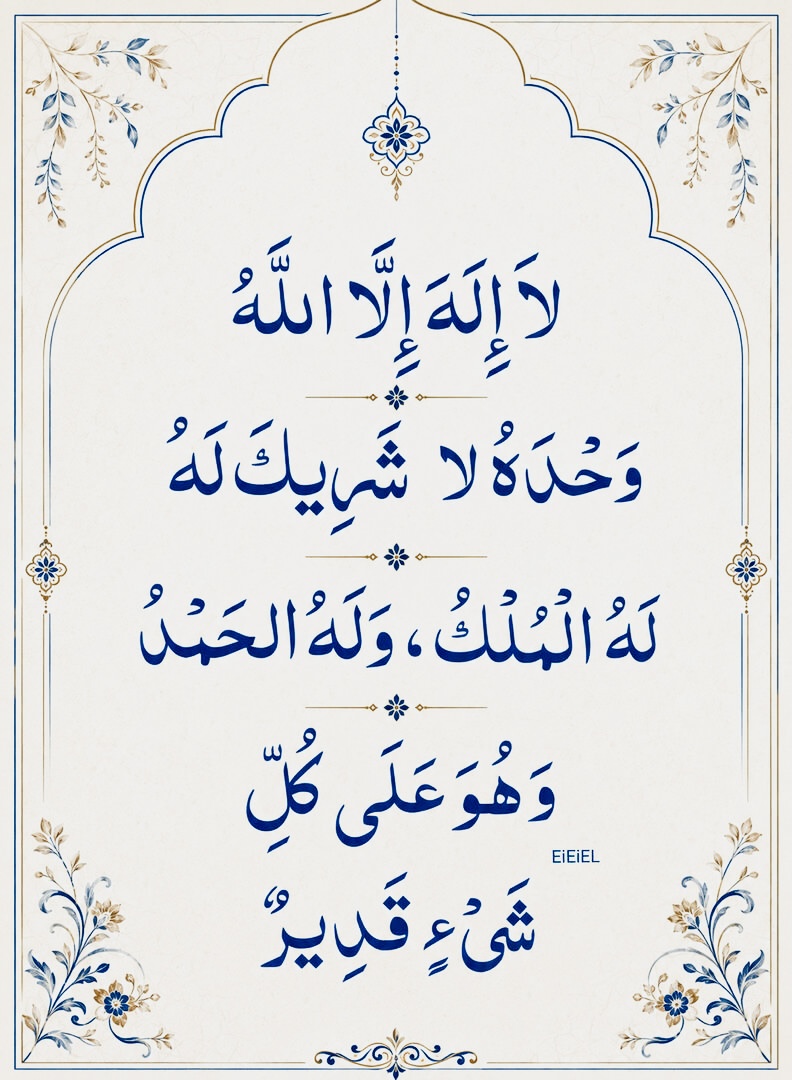 لَا إِلَهَ إِلَّا اللَّهُ
وَحْدَهُ لا شَرِيكَ لَهُ
لَهُ الْمُلْكُ، وَلَهُ الحَمْدُ
وَهُوَ عَلَى كُلِّ
EiEiEL
شَيْءٍ قَدِيرٌ